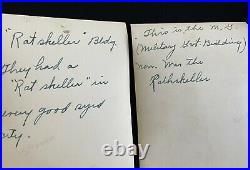 "Rat skeller" Bldg.
They had a
"Rat skeller" in
every good
This is the M. G.
(Military Gvt Building)
now. Was the
Rathskeller